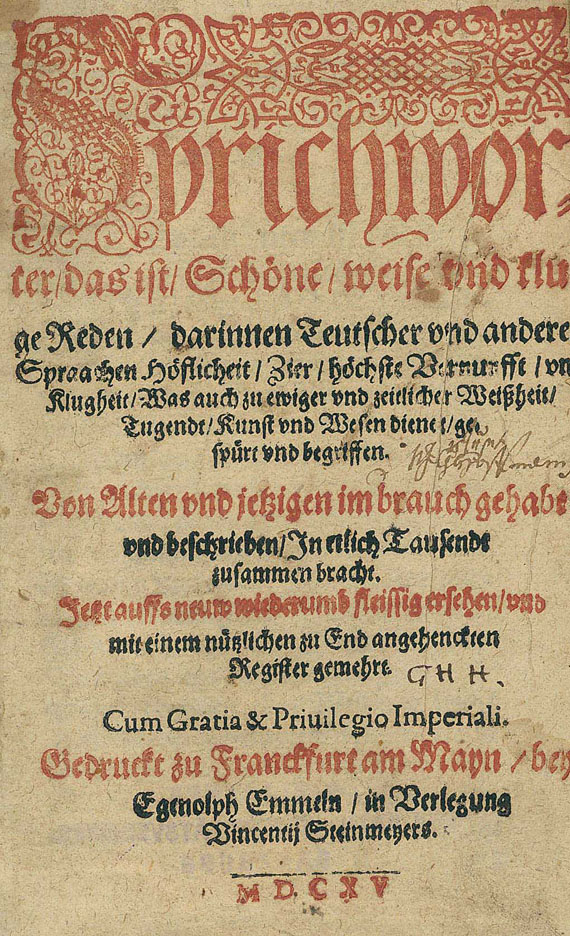 Sprichwor-
ter/ das ist/ Schöne/ weise vnd klu
ge Reden / darinnen Teutscher vnd andere
Spraachen Höflicheit / Zier / höchste Vernunfft / vn
Klugheit / Was auch zu ewiger vnd zeitlicher Weißheit/
Tugendt/ Kunst vnd Wesen dienet / ge
spürt vnd begriffen.
Von Alten vnd jetzigen im brauch gehabt
vnd beschrieben/ In etlich Tausendt
zusammen bracht.
Jetzt auffs neuw wiederumb fleissig ersehen/ vnd
mit einem nützlichen zu End angehenckten
Register gemehrt.
G H H.
Cum Gratia & Priuilegio Imperiali.
Gedruckt zu Franckfurt am Mayn / bey
Egenolph Emmeln / in Verlegung
Vincentij Steinmeyers.
M D C X V